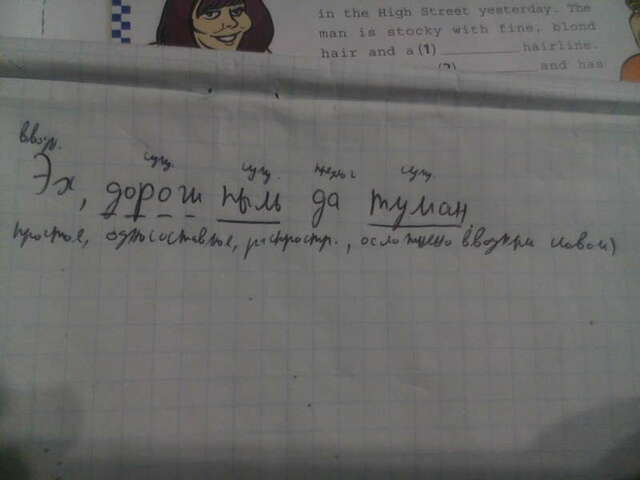 in the High Street yesterday. The
man is stocky with fine, blond
hair and a (1) ________ hairline.
(2) ________ and has
ввод.
сущ. сущ. сущ.
Эх, дороги пыль да туман
простое, односоставное, распростр., осложнено вводным словом)